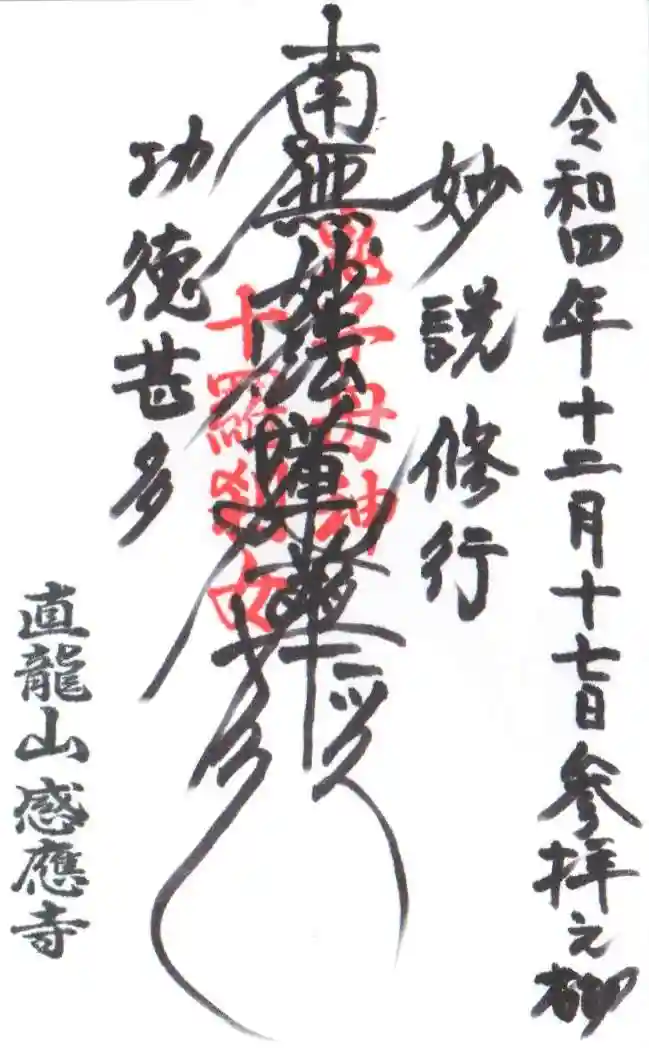 令和四年十二月十七日参拝之砌
妙説修行
南無妙法蓮華経
鬼子母神
十羅刹女
功徳甚多
直龍山感應寺